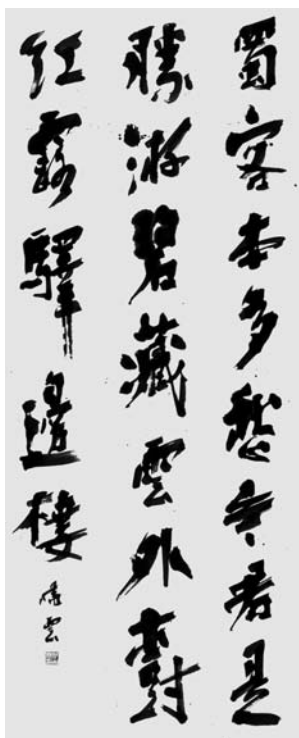 蜀客本多愁今君是
勝游碧藏雲外樹
紅露驛邊樓
雲